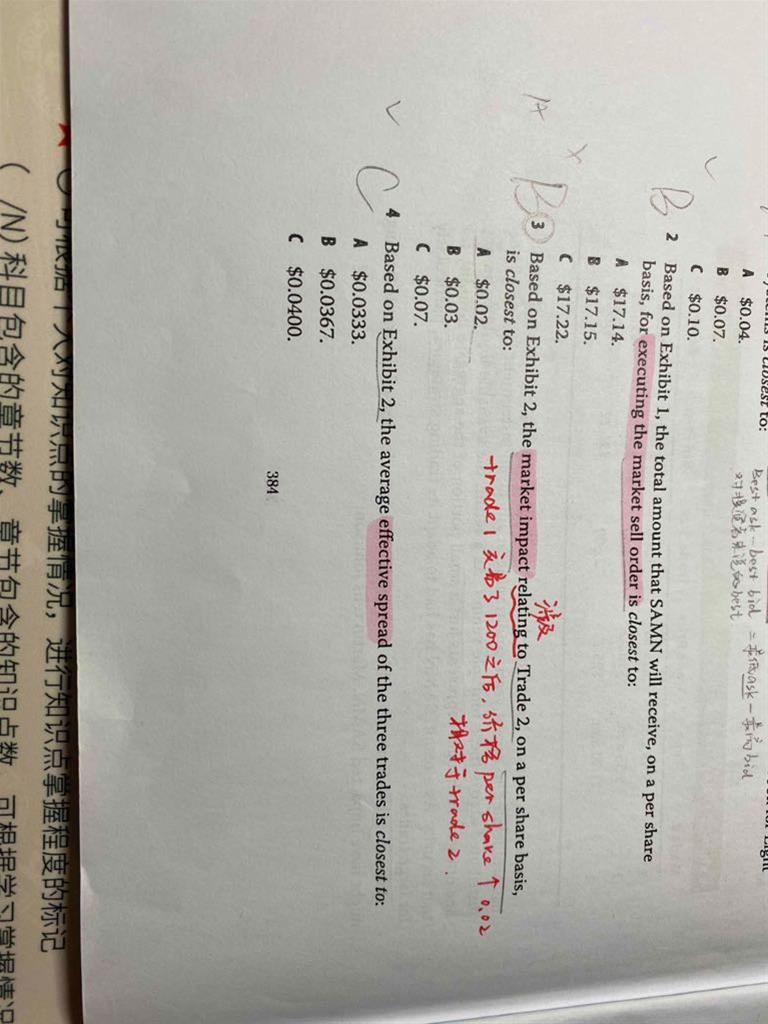 closest to:
A $0.04.
B $0.07.
C $0.10.
Best ask - best bid = 最低ask - 最高bid
B
2 Based on Exhibit 1, the total amount that SAMN will receive, on a per share
basis, for executing the market sell order is closest to:
A $17.14.
B $17.15.
C $17.22.
B
3 Based on Exhibit 2, the market impact relating to Trade 2, on a per share basis,
is closest to:
涉及
A $0.02.
B $0.03.
C $0.07.
trade 1 交易了1200之后,价格 per share ↑ 0.02
相对于 trade 2.
C
4 Based on Exhibit 2, the average effective spread of the three trades is closest to:
A $0.0333.
B $0.0367.
C $0.0400.
384
可根据个人对知识点的掌握情况,进行知识点掌握程度的标记
( /N)科目包含的章节数、章节包含的知识点数,可根据学习掌握情况